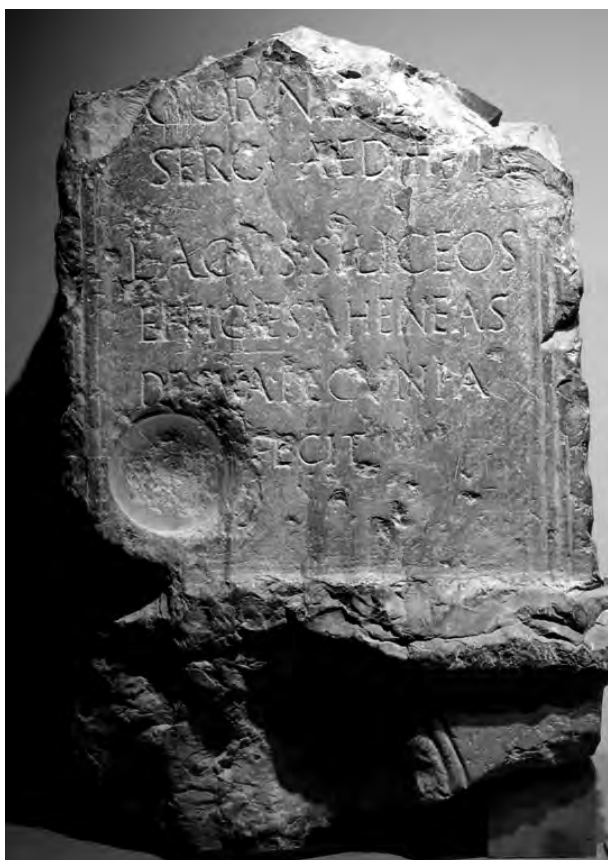 SERG AED
LACVS SILICEOS
EFFIGIES AHENEAS
DE SVA PECVNIA
FECIT